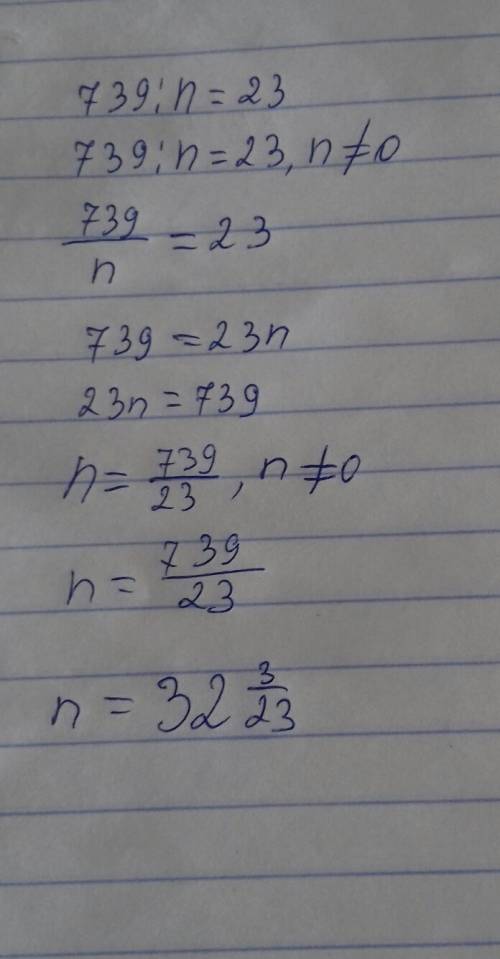 739:n=23
739:n=23, n≠0
739/n = 23
739 = 23n
23n = 739
n = 739/23, n≠0
n = 739/23
n = 32 3/23